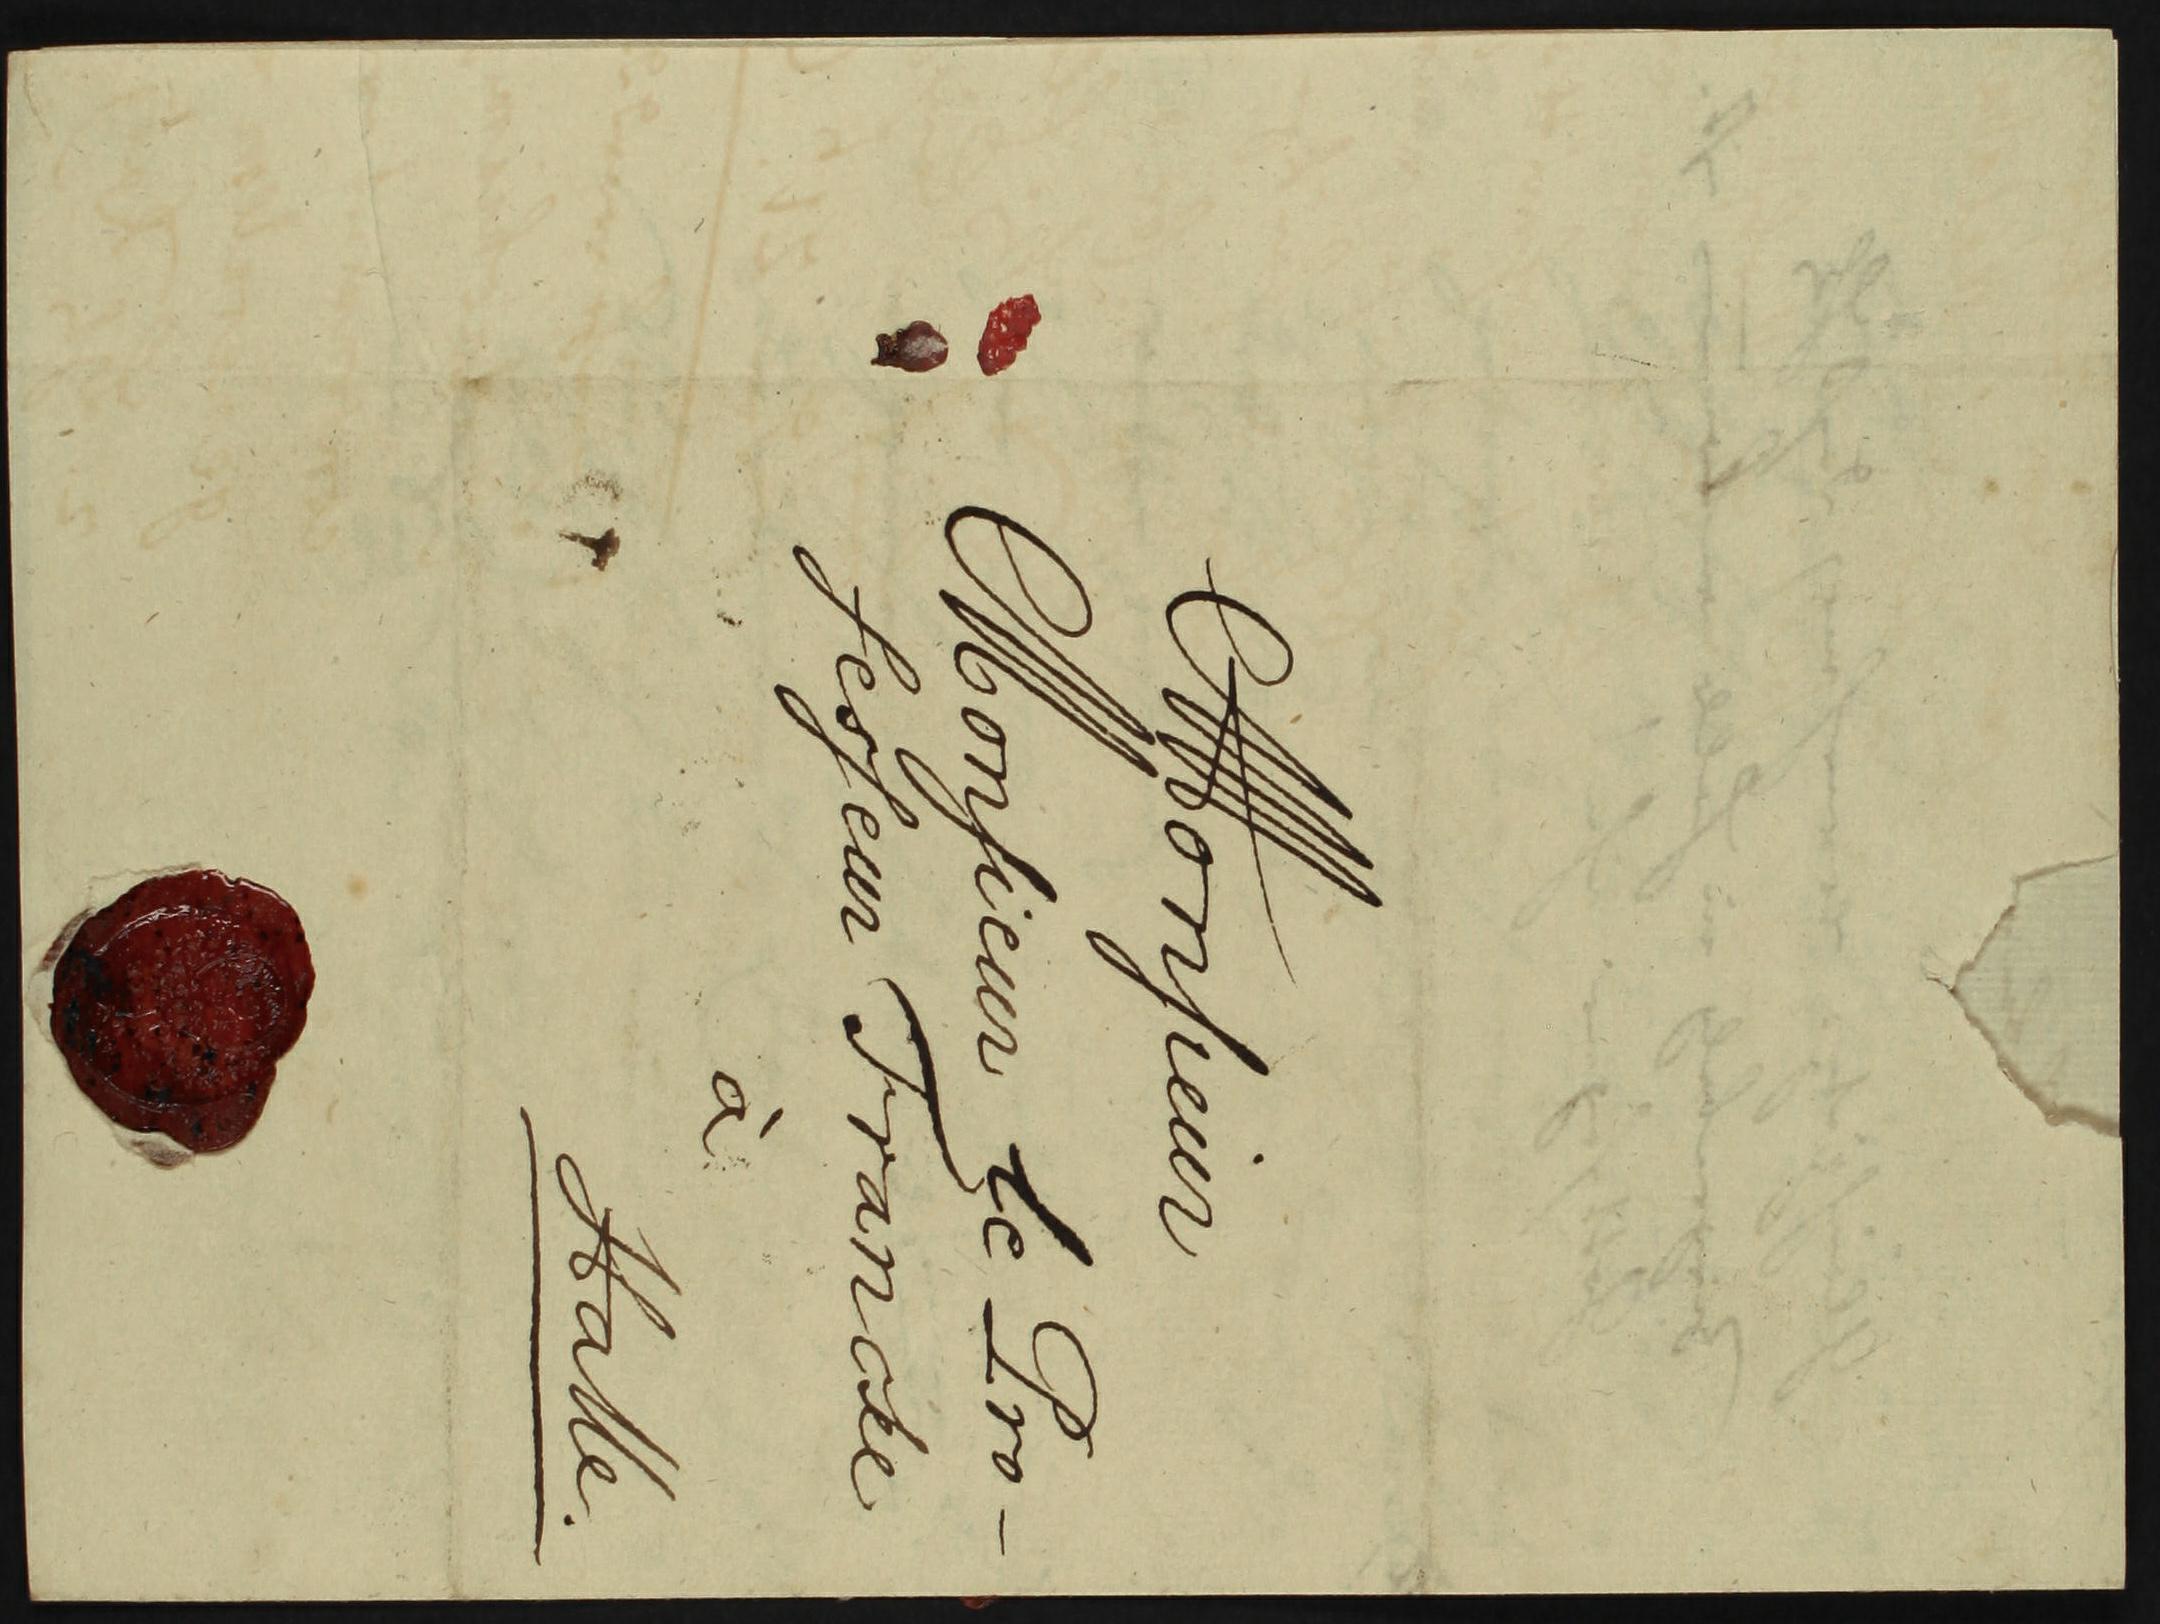 Monsieur
Monsieur le Pro-
fesseur Francke
à
Halle.